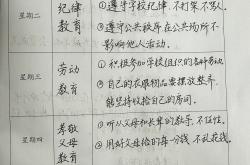 星期二
纪律
教育
①遵守学校纪律,不打架不骂人。
②遵守公共秩序在公共场所不
影响他人活动。
星期三
劳动
教育
①积极参加学校组织的各种劳动
②自己的衣服物品要摆放整齐
能坚持收拾自己的房间。
星期四
孝敬
父母
教育
①听从父母和长辈的教导,不任性。
②用好父母给的每一分钱,不乱花钱。